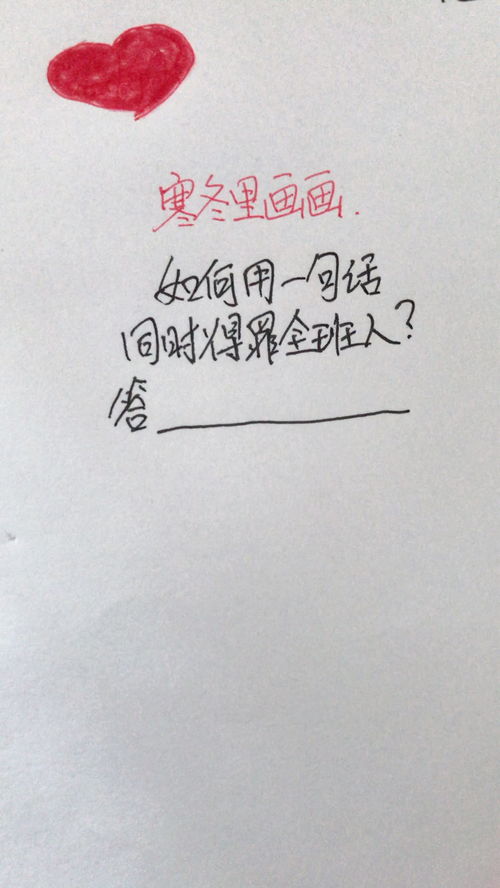 寒冬里画画.
如何用一句话
同时得罪全班人?
答